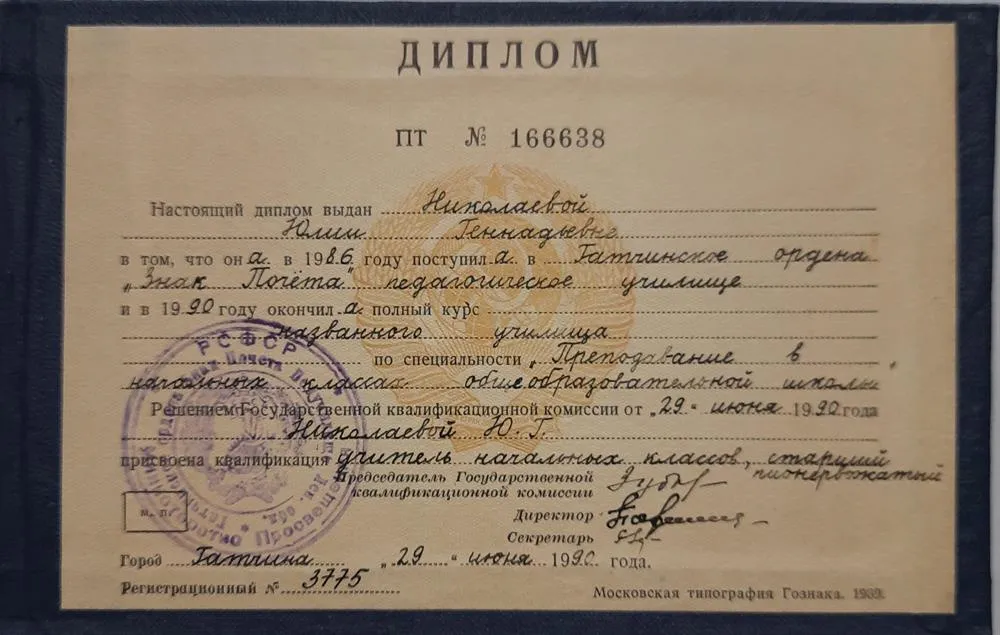 ДИПЛОМ
ПТ № 166638
Настоящий диплом выдан Николаевой
Юлии Геннадьевне
в том, что он а. в 1986 году поступил а. в Гатчинское ордена
„Знак Почёта" педагогическое училище
и в 1990 году окончил а полный курс
названного училища
по специальности „Преподавание в
начальных классах общеобразовательной школы"
Решением Государственной квалификационной комиссии от „29" июня 1990 года
Николаевой Ю. Г.
присвоена квалификация учитель начальных классов, старший
пионервожатый
Председатель Государственной
квалификационной комиссии
Директор
Секретарь
М. П.
Город Гатчина „29" июня 1990 года.
Регистрационный № 3775
Московская типография Гознака. 1989.
РСФСР
Министерство Просвещения